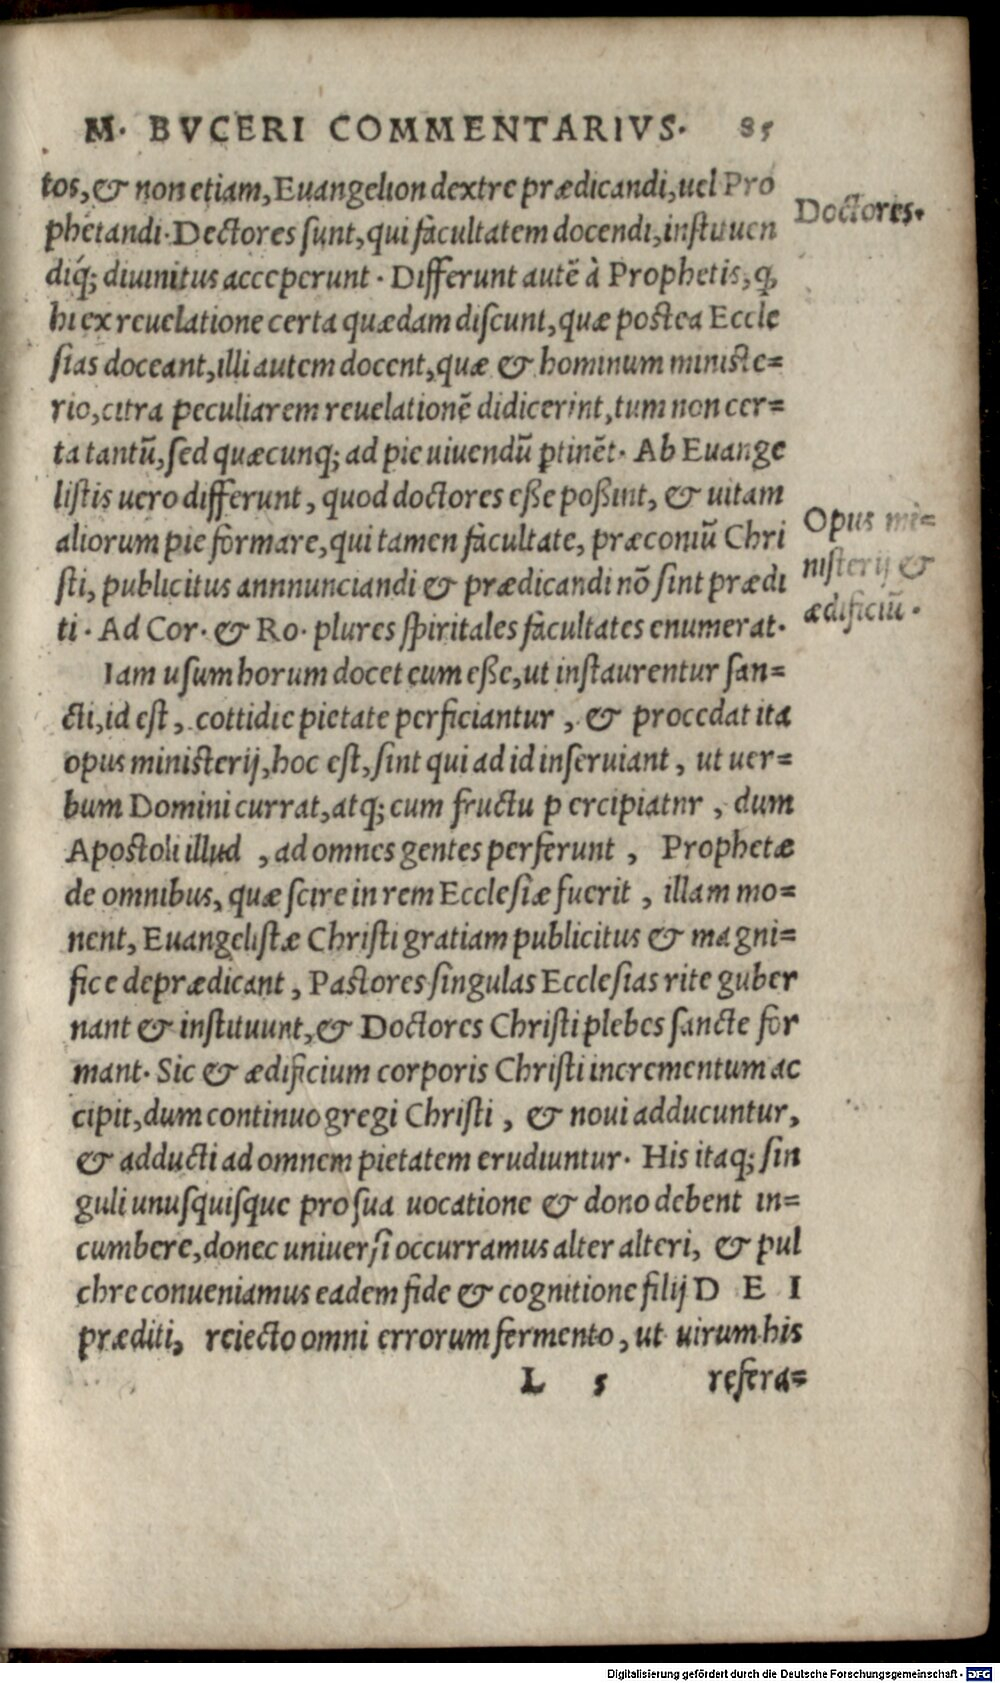 M. BVCERI COMMENTARIVS. 85
tos, & non etiam, Euangelion dextre prædicandi, uel Pro
phetandi. Dectores sunt, qui facultatem docendi, instituen
diq́; diuinitus acceperunt. Differunt autē à Prophetis, ꝙ
hi ex reuelatione certa quædam discunt, quæ postea Eccle
sias doceant, illi autem docent, quæ & hominum ministe=
rio, citra peculiarem reuelationē didicerint, tum non cer=
ta tantū, sed quæcunq; ad pie uiuendū ꝑtinēt. Ab Euange
listis uero differunt, quod doctores eße poßint, & uitam
aliorum pie formare, qui tamen facultate, præconiū Chri
sti, publicitus annnunciandi & prædicandi nō sint prædi
ti. Ad Cor. & Ro. plures spiritales facultates enumerat.
Iam usum horum docet eum eße, ut instaurentur san=
cti, id est, cottidie pietate perficiantur, & procedat ita
opus ministerij, hoc est, sint qui ad id inseruiant, ut uer=
bum Domini currat, atq; cum fructu p ercipiatnr, dum
Apostoli illud, ad omnes gentes perferunt, Prophetæ
de omnibus, quæ scire in rem Ecclesiæ fuerit, illam mo=
nent, Euangelistæ Christi gratiam publicitus & magni=
fice deprædicant, Pastores singulas Ecclesias rite guber
nant & instituunt, & Doctores Christi plebes sancte for
mant. Sic & ædificium corporis Christi incrementum ac
cipit, dum continuo gregi Christi, & noui adducuntur,
& adducti ad omnem pietatem erudiuntur. His itaq; sin
guli unusquisque pro sua uocatione & dono debent in=
cumbere, donec uniuersi occurramus alter alteri, & pul
chre conueniamus eadem fide & cognitione filij D E I
præditi, reiecto omni errorum fermento, ut uirum his
L 5 refera=
Doctores.
Opus mi=
nisterij &
ædificiū.
Digitalisierung gefördert durch die Deutsche Forschungsgemeinschaft - DFG